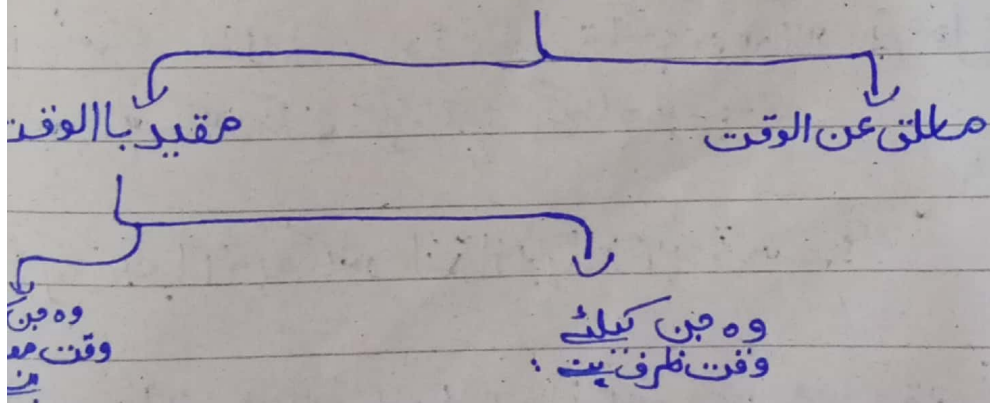 مطلق عن الوقت
مقید باالوقت
وہ جن کیلئے
وقت ظرف ہے :
وہ جن
وقت